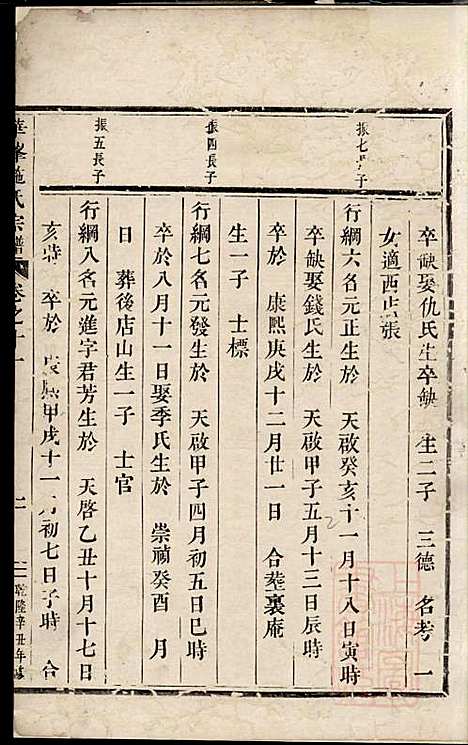 卒缺娶仇氏生卒缺 生二子 三德 名考 一
女適西 張
振七 子
行綱六名元正生於 天啟癸亥十一月十八日寅時
卒缺娶錢氏生於 天啟甲子五月十三日辰時
卒於 康熙庚戌十二月廿一日 合塟裏庵
生一子 士標
振四長子
行綱七名元發生於 天啟甲子四月初五日巳時
卒於八月十一日娶季氏生於 崇禎癸酉 月
日 葬後店山生一子 士官
振五長子
行綱八名元進字君芳生於 天啓乙丑十月十七日
亥時 卒於 康熙甲戌十一月初七日子時 合
華峯施氏宗譜
卷之十一
二
乾隆辛丑年